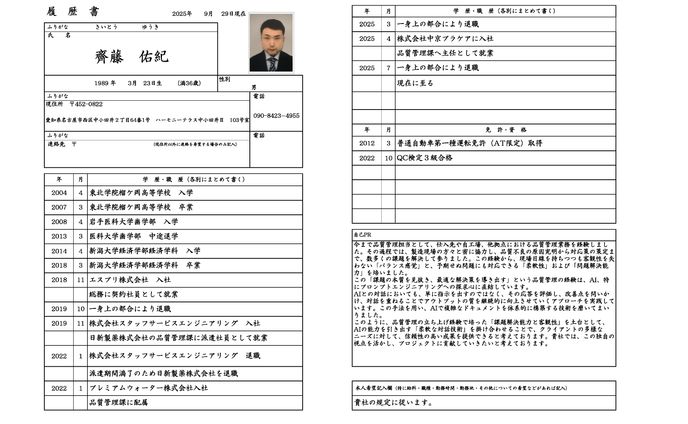 履 歴 書
2025年 9月 29日現在
ふりがな さいとう ゆうき
氏 名
齊藤 佑紀
1989年 3月 23日生 (満36歳)
性別
男
ふりがな
電話
現住所 〒452-0822
愛知県名古屋市西区中小田井2丁目64番1号 ハーモニーテラス中小田井日 103号室
090-8423-4955
ふりがな
電話
連絡先 〒 (現住所以外に連絡を希望する場合のみ記入)
年 月 学 歴・職 歴(各別にまとめて書く)
2004 4 東北学院榴ケ岡高等学校 入学
2007 3 東北学院榴ケ岡高等学校 卒業
2008 4 岩手医科大学歯学部 入学
2013 3 医科大学歯学部 中途退学
2014 4 新潟大学経済学部経済学科 入学
2018 3 新潟大学経済学部経済学科 卒業
2018 11 エスプリ株式会社 入社
総務に契約社員として就業
2019 10 一身上の都合により退職
2019 11 株式会社スタッフサービスエンジニアリング 入社
日新製薬株式会社の品質管理課に派遣社員として就業
2022 1 株式会社スタッフサービスエンジニアリング 退職
派遣期間満了のため日新製薬株式会社を退職
2022 1 プレミアムウォーター株式会社入社
品質管理課に配属
年 月 学 歴・職 歴(各別にまとめて書く)
2025 3 一身上の都合により退職
2025 4 株式会社中京プラケアに入社
品質管理課へ主任として就業
2025 7 一身上の都合により退職
現在に至る
年 月 免 許・資 格
2012 3 普通自動車第一種運転免許(AT限定)取得
2022 10 QC検定3級合格
自己PR
今まで品質管理担当として、仕入先や自工場、他拠点における品質管理業務を経験しまし
た。その過程では、製造現場の方々と密に協力し、品質不良の原因究明から対応策の策定ま
で、数多くの課題を解決して参りました。この経験から、現場目線を持ちつつも客観性を失
わない「バランス感覚」と、予期せぬ問題にも対応できる「柔軟性」および「問題解決能
力」を培いました。
この「課題の本質を見抜き、最適な解決策を導き出す」という品質管理の経験は、AI、特
にプロンプトエンジニアリングへの探求心に直結しています。
AIとの対話においても、単に指示を出すのではなく、その応答を評価し、改善点を問いか
け、対話を重ねることでアウトプットの質を継続的に向上させていくアプローチを実践して
います。この手法を用い、AIで複雑なドキュメントを体系的に構築する技術を磨いてまい
りました。
このように、品質管理の立ち上げ経験で培った「課題解決能力と客観性」を土台として、
AIの能力を引き出す「柔軟な対話技術」を掛け合わせることで、クライアントの多様な
ニーズに対して、信頼性の高い成果を提供できると考えております。貴社では、この独自の
視点を活かし、プロジェクトに貢献していきたいと考えております。
本人希望記入欄(特に給料・職種・勤務時間・勤務地・その他についての希望などがあれば記入)
貴社の規定に従います。